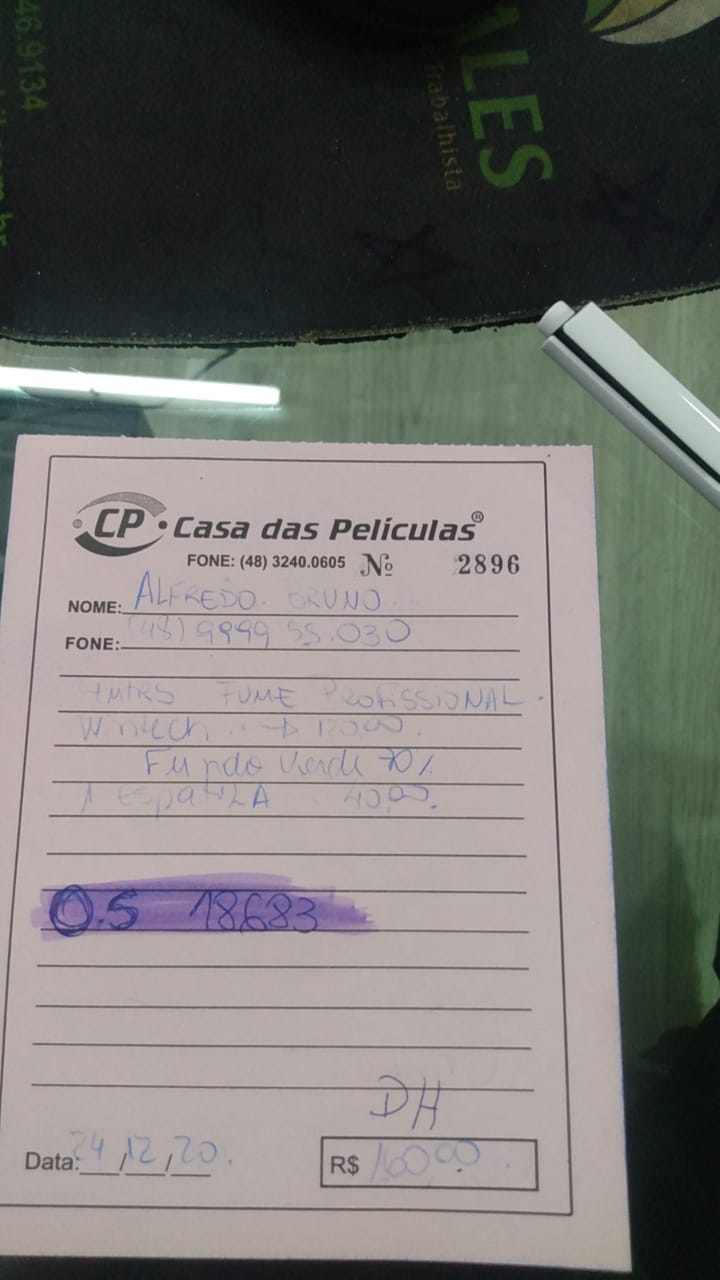 46.9134
ALES
Trabalhista
CP Casa das Películas®
FONE: (48) 3240.0605 Nº 2896
NOME: ALFREDO. BRUNO.
FONE: (48) 9999 55.030
4MTRS FUME PROFISSIONAL.
Wintech → 120,00.
Fundo Verde 70%
1 EspATULA 40,00.
O.S 18683
DH
Data: 24/12/20.
R$ 160,00